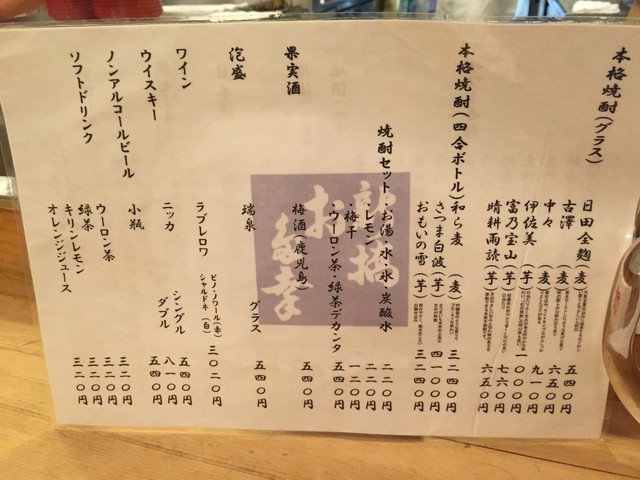 本格焼酎(グラス)
日田全麹(麦) 五四〇円
古澤(麦) 六五〇円
中々(麦) 九一〇円
伊佐美(芋) 一〇〇〇円
富乃宝山(芋) 七六〇円
晴耕雨読(芋) 六五〇円
本格焼酎(四合ボトル)
和ら麦(麦) 三二四〇円
さつま白波(芋) 四一〇〇円
おもいの雪(芋) 三二四〇円
焼酎セット・お湯・水・氷・炭酸水 二二〇円
・レモン 二二〇円
・梅干 一二〇円
・ウーロン茶・緑茶デカンタ 五四〇円
果実酒
梅酒(鹿児島) 五四〇円
お多幸
泡盛
瑞泉 グラス 五四〇円
ワイン
ラブレロワ ピノ・ノワール(赤) シャルドネ(白) 三〇二〇円
ウイスキー
ニッカ シングル 五四〇円
ダブル 八一〇円
ノンアルコールビール
小瓶 五四〇円
ソフトドリンク
ウーロン茶 三二〇円
緑茶 三二〇円
キリンレモン 三二〇円
オレンジジュース 三二〇円